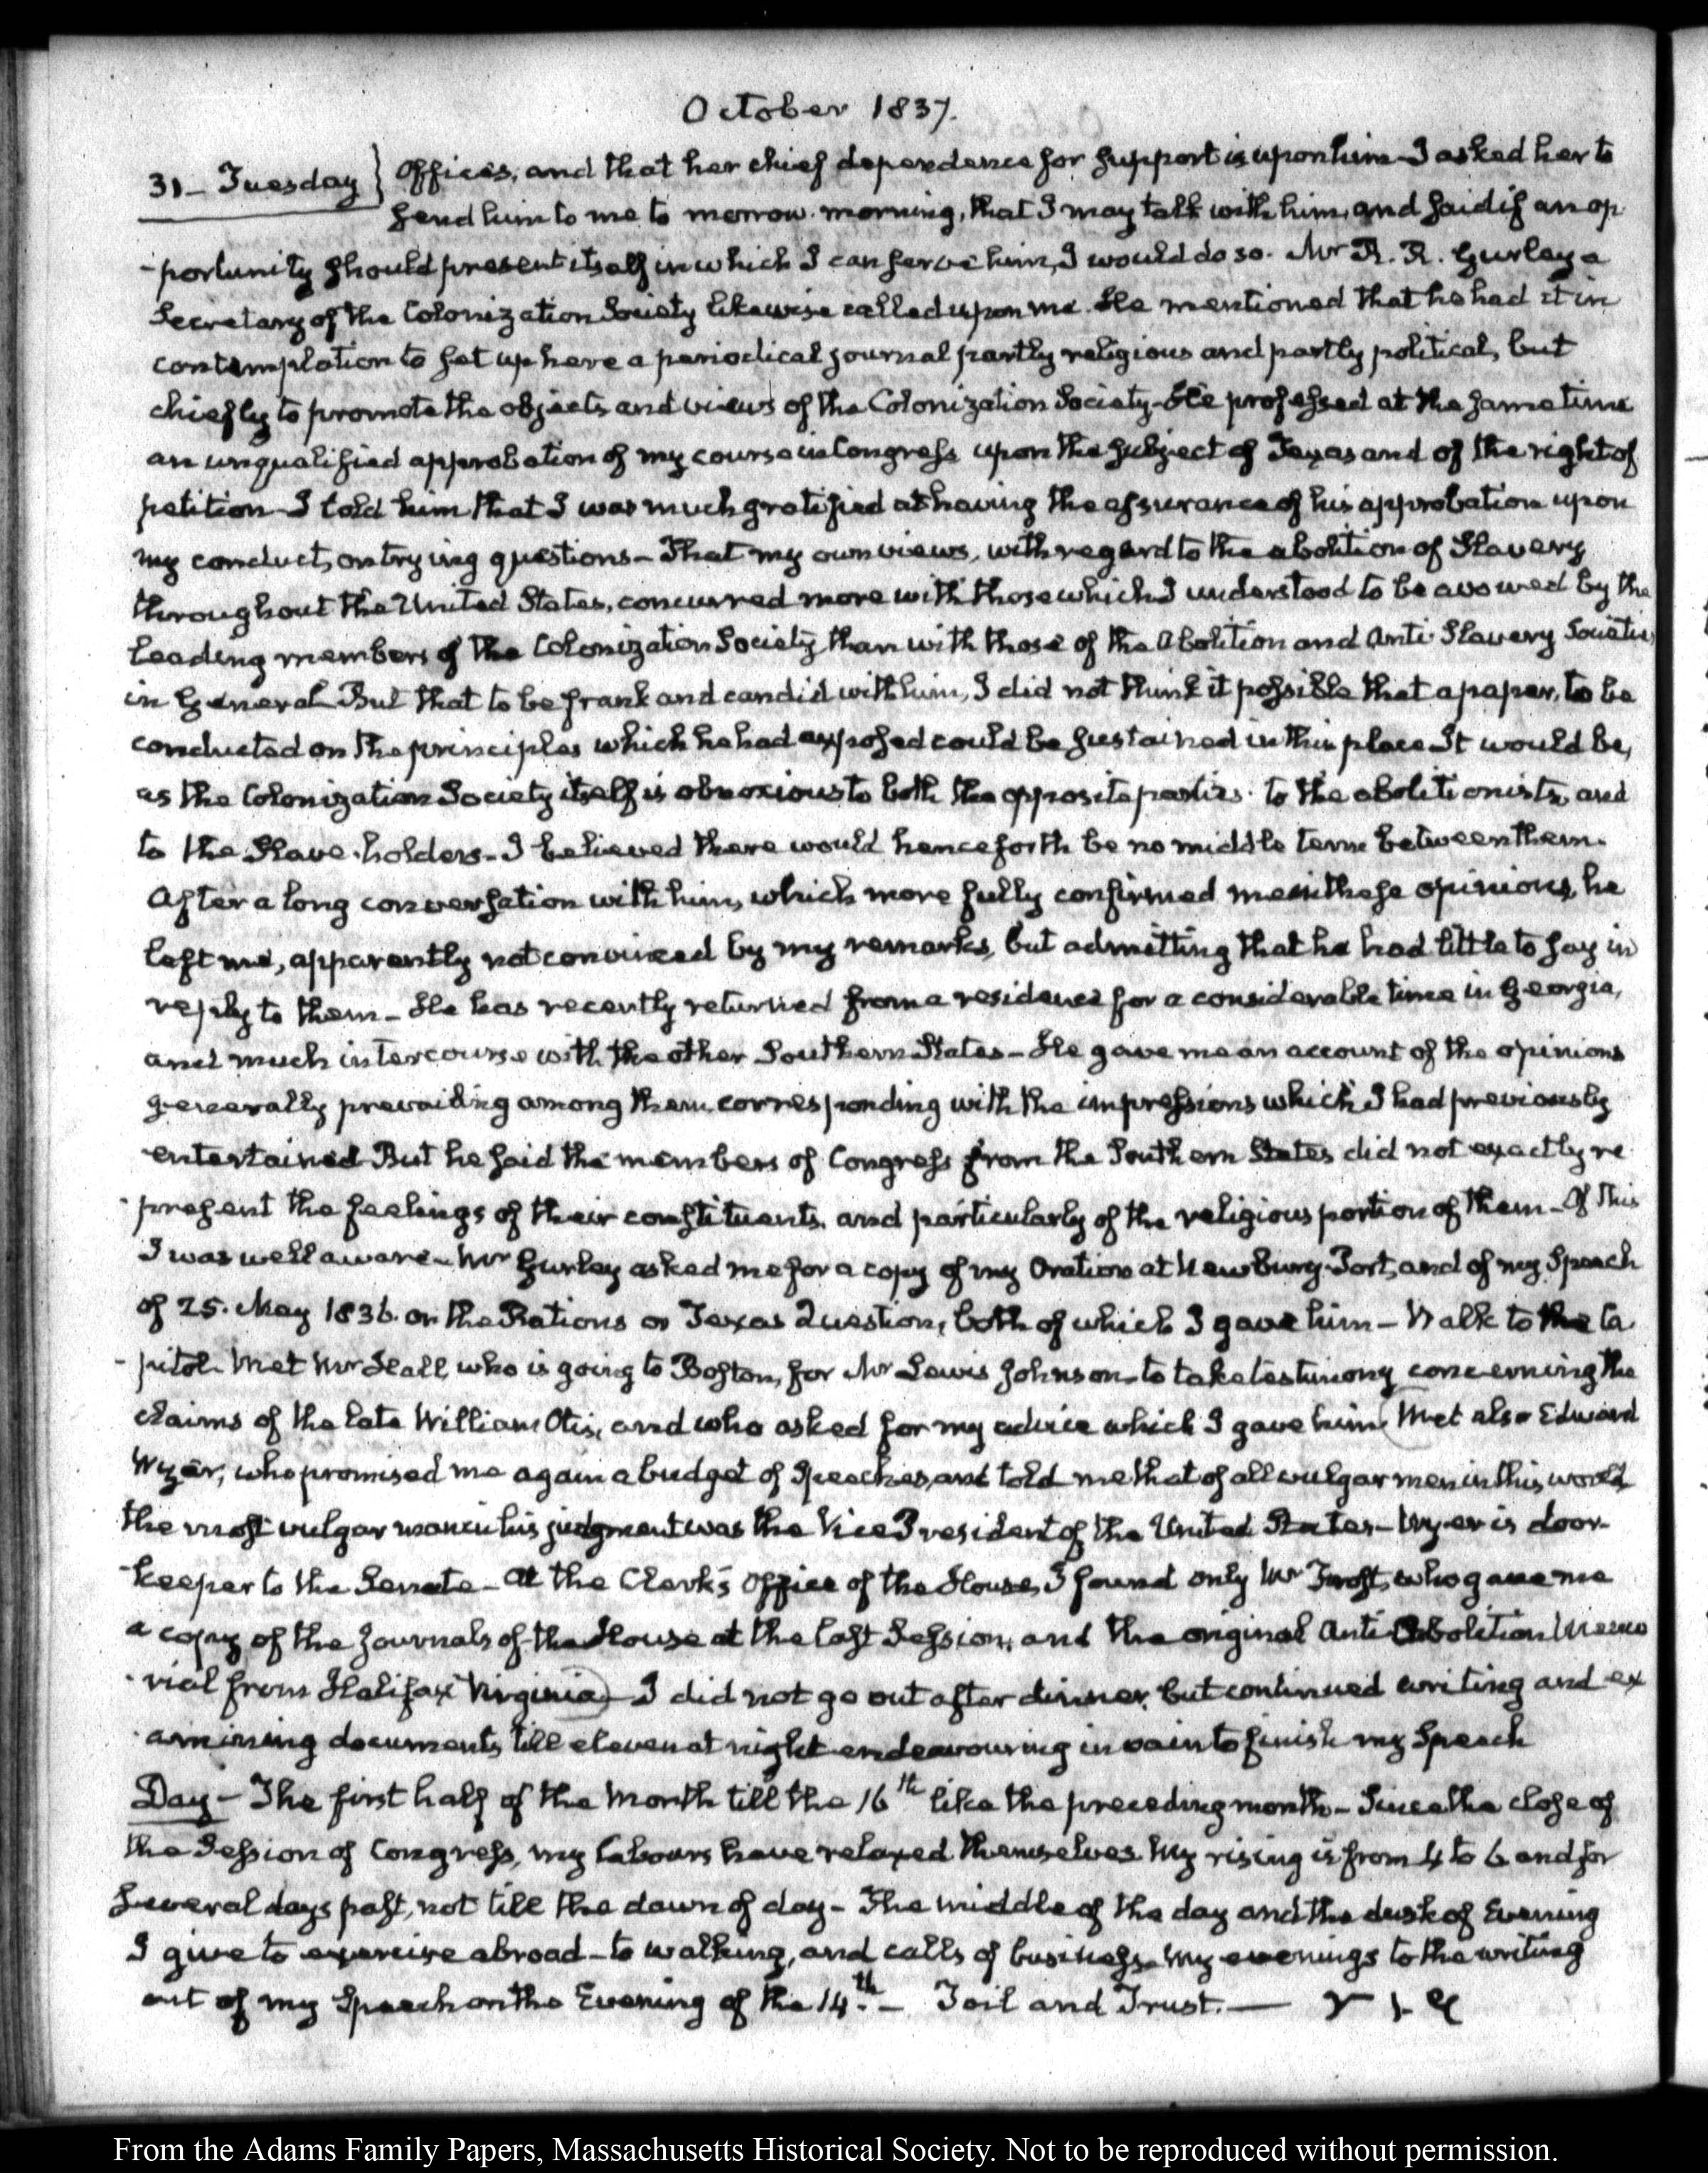 October 1837.
31 – Tuesday } Offices, and that her chief dependence for support is upon him – I asked her to
send him to me to morrow morning, that I may talk with him, and said if an op
-portunity should present itself in which I can serve him, I would do so. Mr R. R. Gurley a
Secretary of the Colonization Society likewise called upon me. He mentioned that he had it in
contemplation to set up here a periodical journal partly religious and partly political, but
chiefly to promote the objects and views of the Colonization Society – He professed at the same time
an unqualified approbation of my course in Congress upon the subject of Texas and of the right of
petition – I told him that I was much gratified at having the assurance of his approbation upon
my conduct, on trying questions – That my own views, with regard to the abolition of Slavery
throughout the United States, concurred more with those which I understood to be avowed by the
leading members of the Colonization Society than with those of the Abolition and Anti-Slavery Societies
in General – But that to be frank and candid with him, I did not think it possible that a paper, to be
conducted on the principles which he had exposed could be sustained in this place – It would be,
as the Colonization Society itself is obnoxious to both the opposite parties. to the abolitionists, and
to the Slave-holders – I believed there would henceforth be no middle term between them.
After a long conversation with him, which more fully confirmed me in these opinions, he
left me, apparently not convinced by my remarks, but admitting that he had little to say in
reply to them – He has recently returned from a residence for a considerable time in Georgia,
and much intercourse with the other Southern States – He gave me an account of the opinions
generally prevailing among them, corresponding with the impressions which I had previously
entertained – But he said the members of Congress from the Southern States did not exactly re
-present the feelings of their constituents, and particularly of the religious portion of them – Of this
I was well aware – Mr Gurley asked me for a copy of my Oration at Newbury-Port, and of my Speech
of 25. May 1836. on the Rations or Texas Question, both of which I gave him – Walk to the Ca
-pitol. Met Mr Hall who is going to Boston, for Mr Lewis Johnson – to take testimony concerning the
claims of the late William Otis, and who asked for my advice which I gave him (Met also Edward
Wyer, who promised me again a budget of Speeches, and told me that of all vulgar men in this world
the most vulgar man in his judgment was the Vice President of the United States – Wyer is door-
-keeper to the Senate – At the Clerk's Office of the House, I found only Mr Frost, who gave me
a copy of the Journals of the House at the last Session, and the original Anti-Abolition Memo
-rial from Halifax Virginia) – I did not go out after dinner, but continued writing and ex
-amining documents, till eleven at night endeavouring in vain to finish my Speech
Day – The first half of the Month till the 16th like the preceding month – Since the close of
the Session of Congress, my labours have relaxed themselves. My rising is from 4 to 6 and for
several days past, not till the dawn of day – The middle of the day and the dusk of Evening
I give to exercise abroad – to walking, and calls of business – My evenings to the writing
out of my Speech on the Evening of the 14th. – Toil and Trust. —
From the Adams Family Papers, Massachusetts Historical Society. Not to be reproduced without permission.